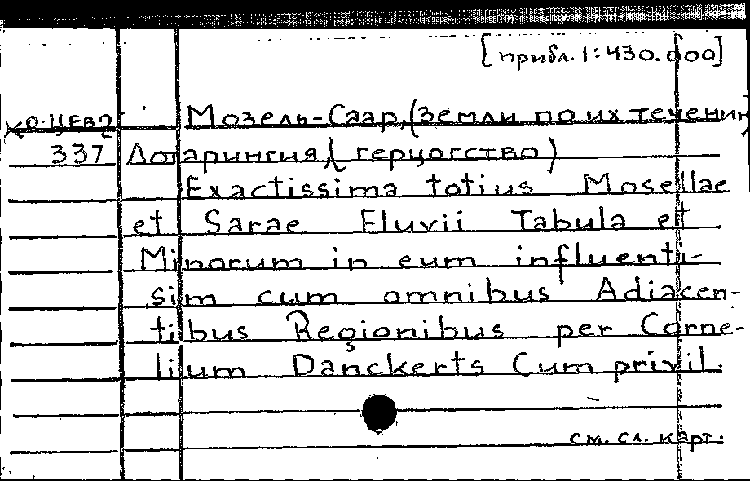 [прибл. 1:430.000]
КО-ЦЕВ2 Мозель-Саар, (земли по их течению)
337 Лотарингия (герцогство)
Exactissima totius Mosellae
et Sarae Fluvii Tabula et
Minorum in eum influenti-
sim cum omnibus Adiacen-
tibus Regionibus per Corne-
lium Danckerts Cum privil.
см. сл. карт.